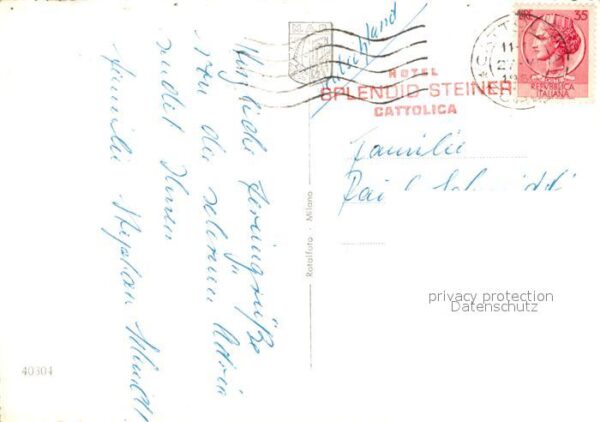 Herzliche Feriengrüße
von der schönen Adria
sendet Ihnen
Familie Stephan
Deutschland
HOTEL
SPLENDID STEINER
CATTOLICA
LIRE 35
REPVBBLICA
ITALIANA
Familie
Rotalfoto - Milano
privacy protection
Datenschutz
40304